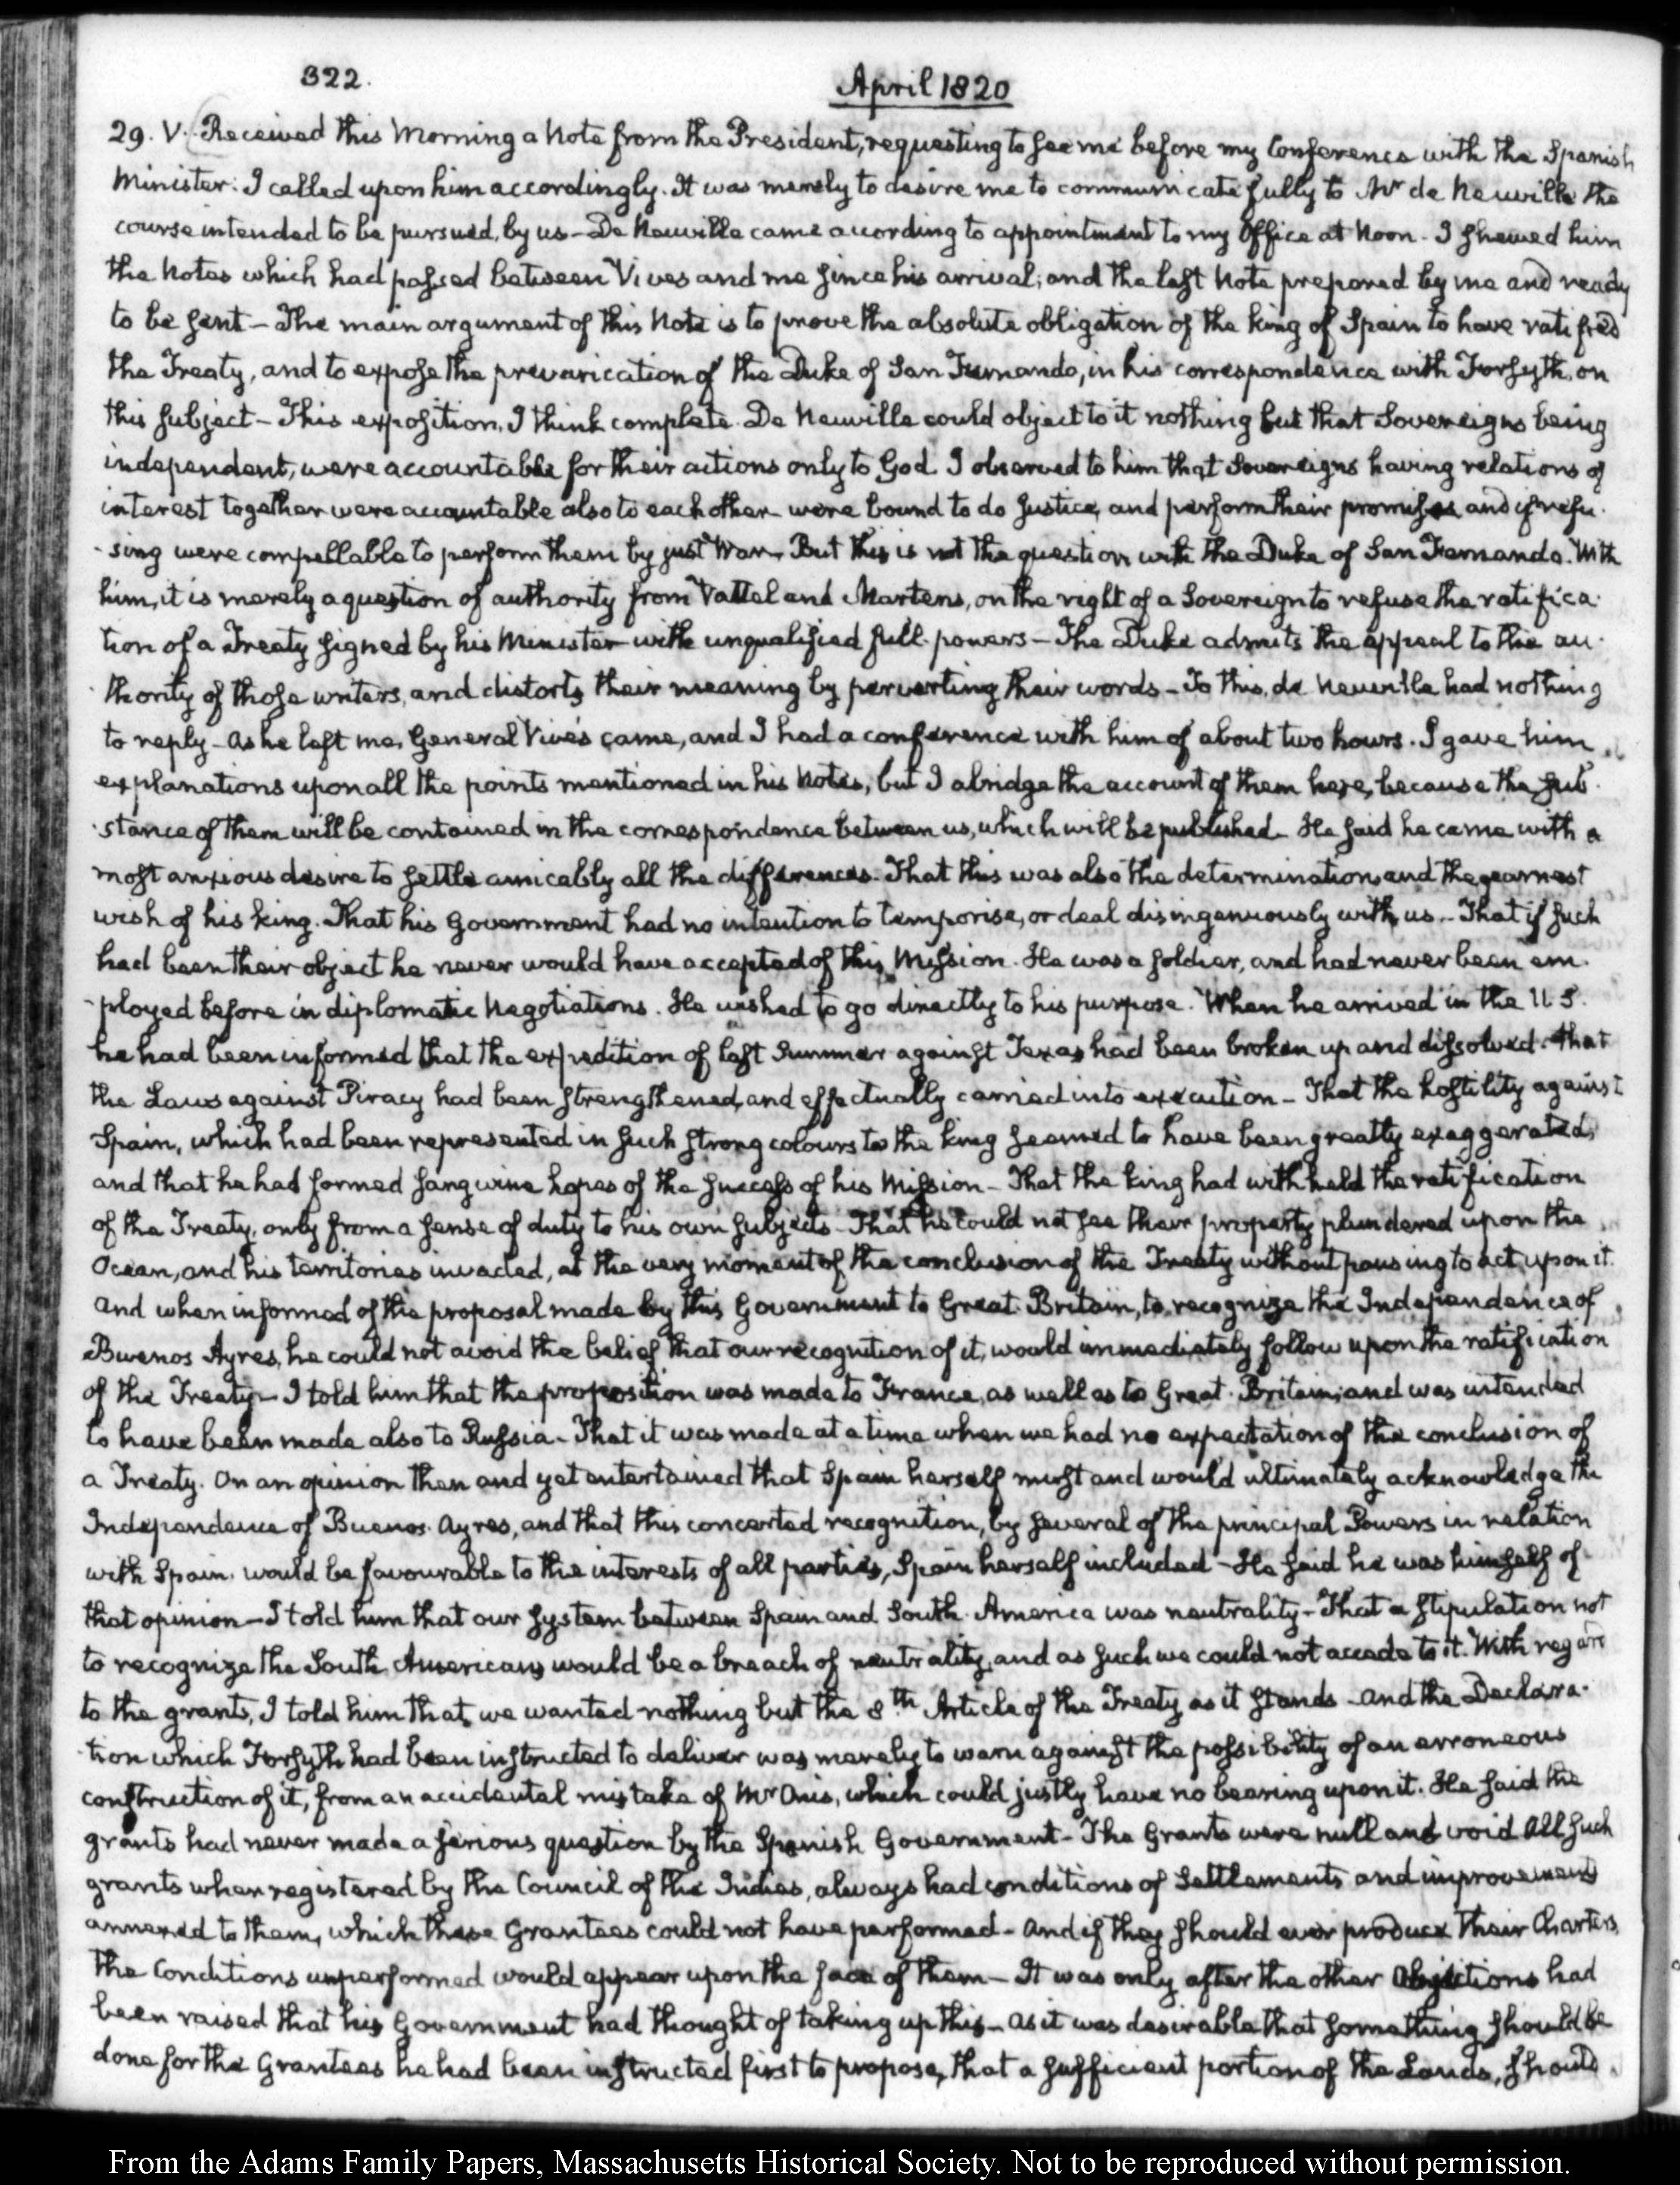 322.
April 1820
29. V. Received this Morning a Note from the President, requesting to see me before my Conference with the Spanish
Minister: I called upon him accordingly. It was merely to desire me to communicate fully to Mr de Neuville the
course intended to be pursued, by us — De Neuville came according to appointment to my Office at Noon. I shewed him
the Notes which had passed between Vives and me since his arrival; and the last Note prepared by me and ready
to be sent — The main argument of this Note is to prove the absolute obligation of the king of Spain to have ratified
the Treaty, and to expose the prevarication of the Duke of San Fernando, in his correspondence with Forsyth, on
this subject — This exposition, I think complete. De Neuville could object to it nothing but that Sovereigns being
independent, were accountable for their actions only to God. I observed to him that Sovereigns having relations of
interest together were accountable also to each other — were bound to do Justice, and perform their promises and if refu-
-sing were compellable to perform them by just War. But this is not the question with the Duke of San Fernando. With
him, it is merely a question of authority from Vattel and Martens, on the right of a Sovereign to refuse the ratifica-
tion of a Treaty signed by his Minister with unqualified full-powers — The Duke admits the appeal to the au-
-thority of those writers, and distorts their meaning by perverting their words — To this, de Neuville had nothing
to reply — As he left me, General Vivés came, and I had a conference with him of about two hours. I gave him
explanations upon all the points mentioned in his Notes, but I abridge the account of them here, because the sub-
-stance of them will be contained in the correspondence between us, which will be published — He said he came with a
most anxious desire to settle amicably all the differences. That this was also the determination and the earnest
wish of his king. That his Government had no intention to temporise, or deal disingenuously with us — That if such
had been their object he never would have accepted of this Mission. He was a soldier, and had never been em-
-ployed before in diplomatic Negotiations. He wished to go directly to his purpose. When he arrived in the U S.
he had been informed that the expedition of last Summer against Texas had been broken up and dissolved. That
the Laws against Piracy had been strengthened, and effectually carried into execution — That the hostility against
Spain, which had been represented in such strong colours to the king seemed to have been greatly exaggerated,
and that he had formed sanguine hopes of the success of his Mission — That the king had withheld the ratification
of the Treaty, only from a sense of duty to his own subjects — That he could not see their property plundered upon the
Ocean, and his territories invaded, at the very moment of the conclusion of the Treaty without pausing to act upon it.
And when informed of the proposal made by this Government to Great-Britain, to recognize the Independence of
Buenos Ayres, he could not avoid the belief that our recognition of it, would immediately follow upon the ratification
of the Treaty — I told him that the proposition was made to France, as well as to Great-Britain, and was intended
to have been made also to Russia — That it was made at a time when we had no expectation of the conclusion of
a Treaty. On an opinion then and yet entertained that Spain herself must and would ultimately acknowledge the
Independence of Buenos-Ayres, and that this concerted recognition, by several of the principal Powers in relation
with Spain, would be favourable to the interests of all parties, Spain herself included — He said he was himself of
that opinion — I told him that our system between Spain and South-America was neutrality — That a stipulation not
to recognize the South Americans would be a breach of neutrality, and as such we could not accede to it. With regard
to the grants, I told him that we wanted nothing but the 8th Article of the Treaty as it stands — And the Declara-
-tion which Forsyth had been instructed to deliver was merely to warn against the possibility of an erroneous
construction of it, from an accidental mistake of Mr Onis, which could justly have no bearing upon it. He said the
grants had never made a serious question by the Spanish Government — The Grants were null and void All such
grants when registered by the Council of the Indies, always had conditions of Settlements and improvements
annexed to them, which these Grantees could not have performed — And if they should ever produce their Charters,
the Conditions unperformed would appear upon the face of them — It was only after the other Objections had
been raised that his Government had thought of taking up this — As it was desirable that something should be
done for the Grantees he had been instructed first to propose, that a sufficient portion of the Lands, should
From the Adams Family Papers, Massachusetts Historical Society. Not to be reproduced without permission.